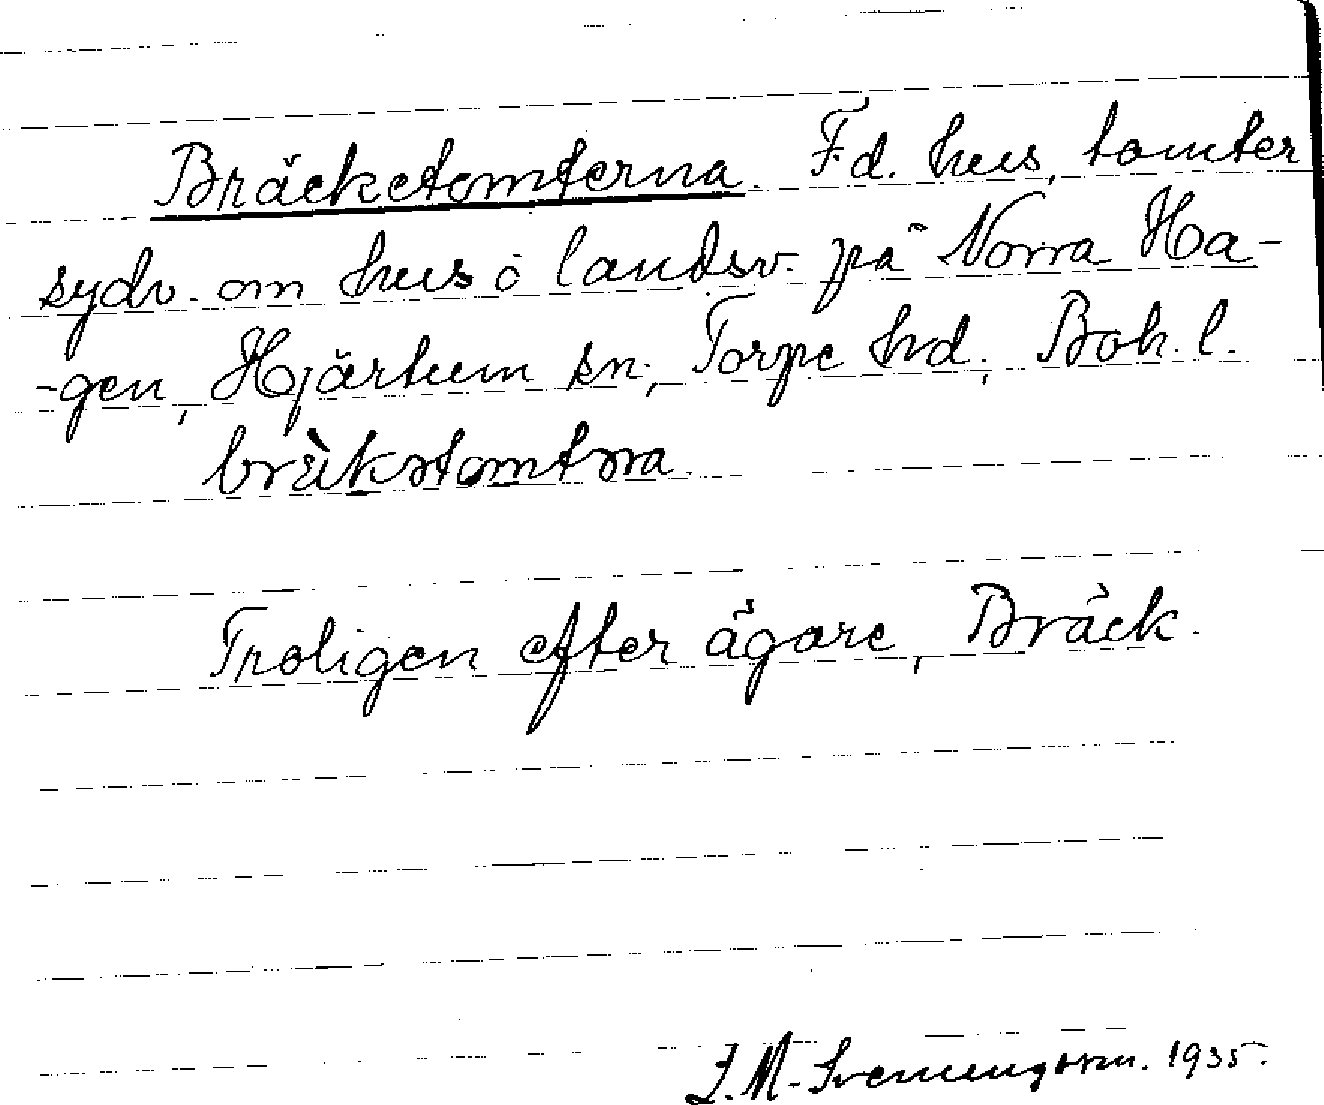 Bräcketomterna. F.d. hus, tomter
sydv. om hus o landsv. på Norra Ha-
-gen, Hjärtum sn., Torpe hd, Boh. l.
brä̀kətomtəra
Troligen efter ägare, Bräck.
J.M. Svenungsson. 1935.